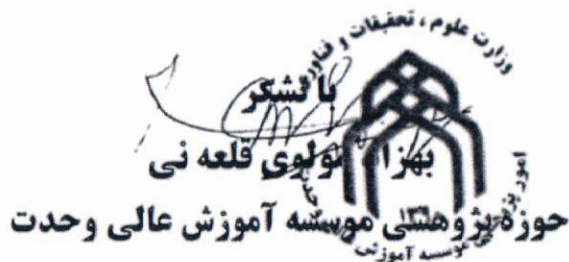 وزارت علوم ، تحقیقات و فناوری
با تشکر
بهزاد مولوی قلعه نی
حوزه پژوهشی موسسه آموزش عالی وحدت
امور پژوهشی موسسه آموزش